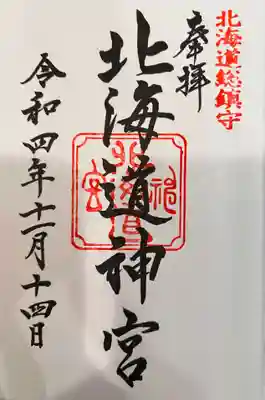 北海道総鎮守
奉拝
北海道神宮
令和四年十一月十四日